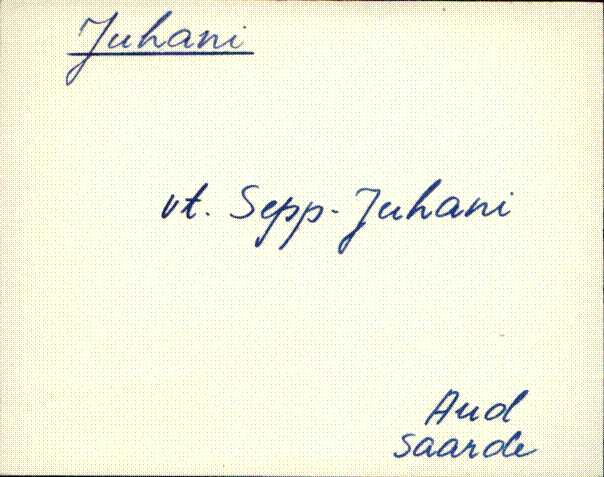 Juhani
vt. Sepp-Juhani
Aud
Saarde